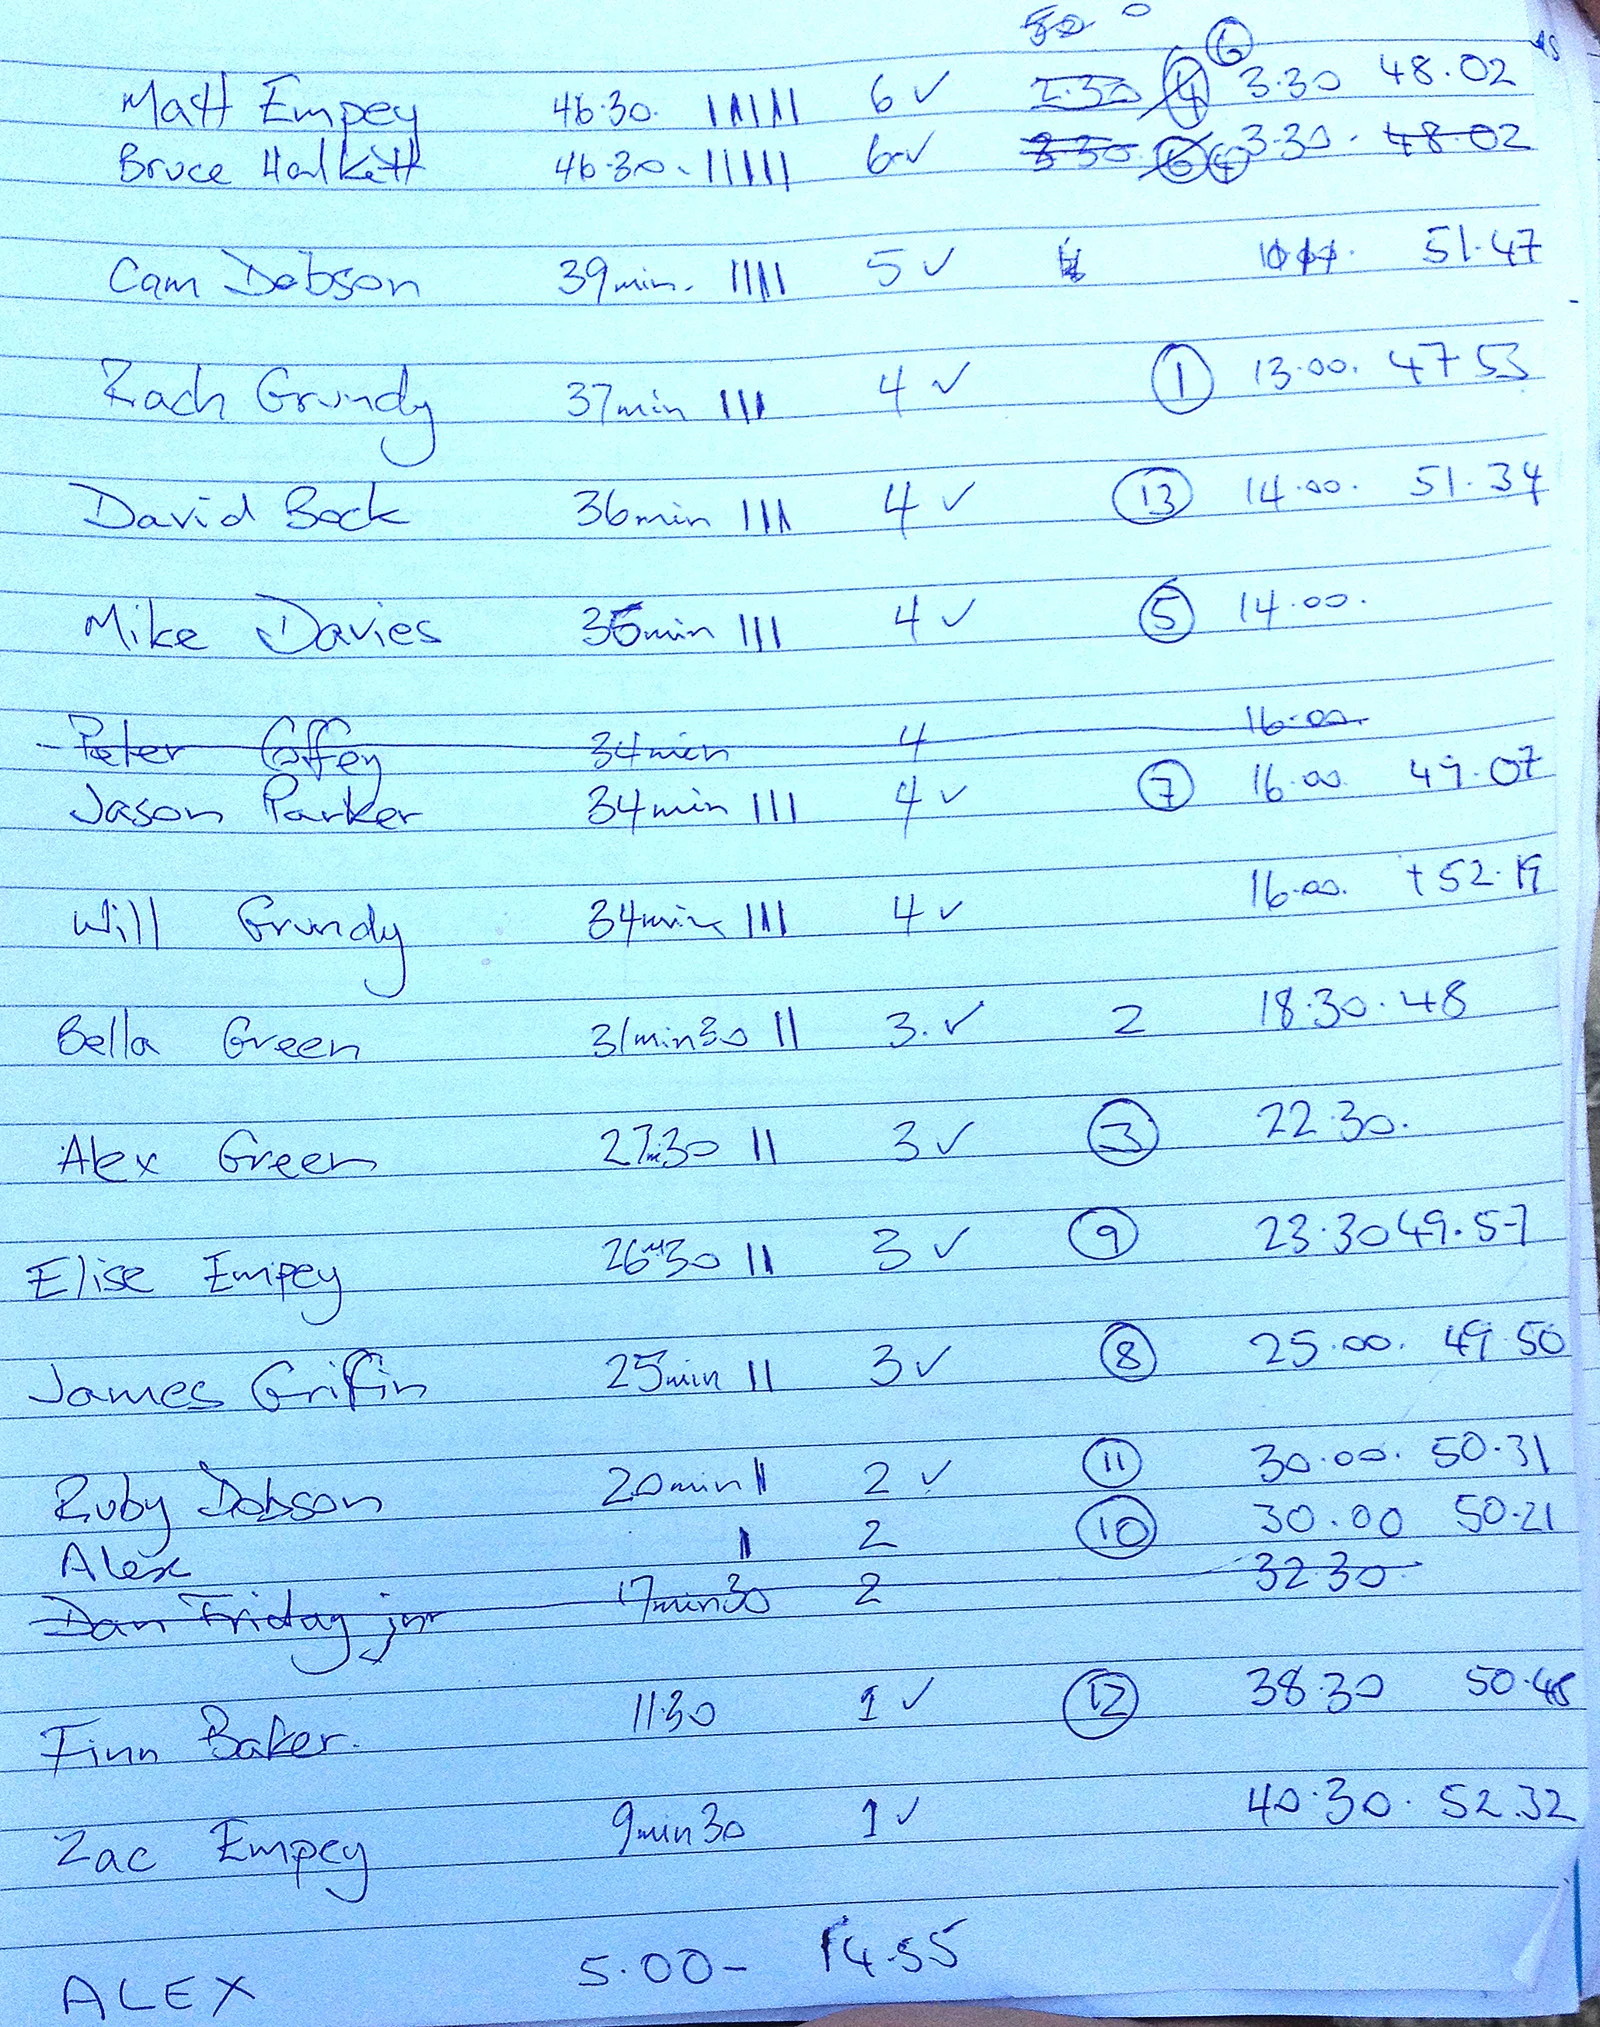 6
Matt Empey 46.30. 6 ✓ 2.30 4 3.30 48.02
Bruce Halkett 46.30. 6 ✓ 3.30 6 4 3.30. 48.02
Cam Dobson 39min. 5 ✓ 51.47
Zach Grundy 37min 4 ✓ 1 13.00. 47 53
David Bock 36min 4 ✓ 13 14.00. 51.34
Mike Davies 36min 4 ✓ 5 14.00.
Peter Coffey 34min 4 16.00.
Jason Parker 34min 4 ✓ 7 16.00 49.07
Will Grundy 34min 4 ✓ 16.00. + 52.19
Bella Green 31min30 3. ✓ 2 18.30. 48
Alex Green 27m30 3 ✓ 3 22.30.
Elise Empey 26m30 3 ✓ 9 23.30 49.57
James Griffin 25min 3 ✓ 8 25.00. 49 50
Ruby Dobson 20min 2 ✓ 11 30.00. 50.31
Alex 2 10 30.00 50.21
Dan Friday jnr 17min30 2 32 30
Finn Baker. 11.30 1 ✓ 12 38.30 50.48
Zac Empey 9min30 1 ✓ 40.30. 52.32
ALEX 5.00- 14.55